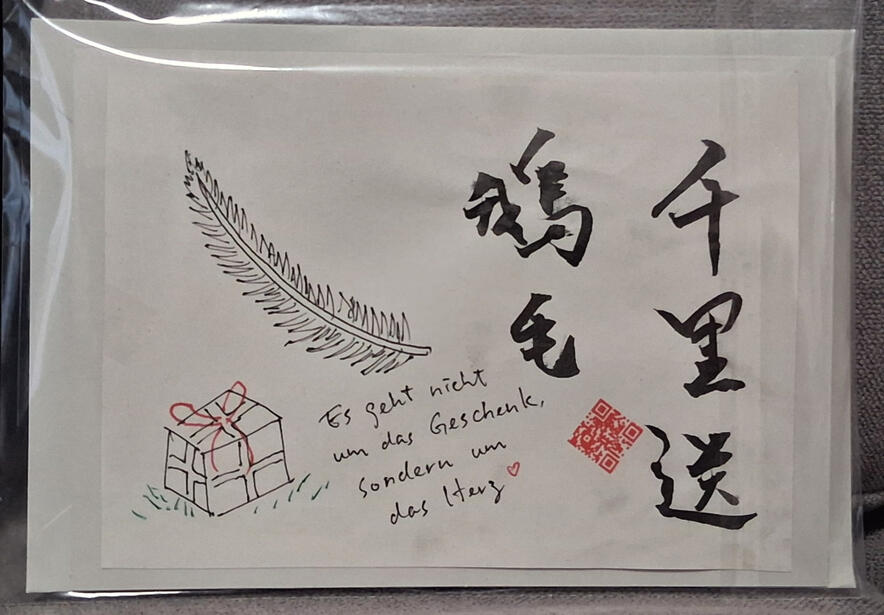 千里送
鵝毛
Es geht nicht
um das Geschenk,
sondern um
das Herz